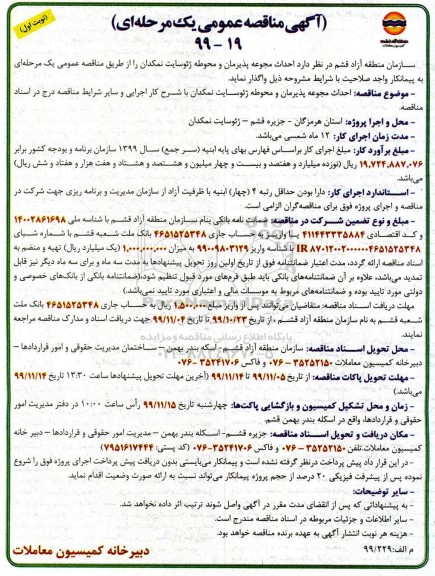 (آگهی مناقصه عمومی یک مرحله‌ای)
(نوبت اول)
۱۹ - ۹۹
سازمان منطقه آزاد قشم در نظر دارد احداث مجوعه پذیرمان و محوطه ژئوسایت نمکدان را از طریق مناقصه عمومی یک مرحله‌ای
به پیمانکار واجد صلاحیت با شرایط مشروحه ذیل واگذار نماید.
- موضوع مناقصه: احداث مجوعه پذیرمان و محوطه ژئوسایت نمکدان با شرح کار اجرایی و سایر شرایط مناقصه درج در اسناد
مناقصه.
- محل و اجرا پروژه: استان هرمزگان - جزیره قشم – ژئوسایت نمکدان
- مدت زمان اجرای کار: ۱۲ ماه شمسی می‌باشد.
- مبلغ برآورد کار: مبلغ اجرای کار براساس فهارس بهای پایه ابنیه (سر جمع) سال ۱۳۹۹ سازمان برنامه و بودجه کشور برابر
۱۹,۷۲۴,۸۸۷,۰۷۶ ریال (نوزده میلیارد و هفتصد و بیست و چهار میلیون و هشتصد و هشتاد و هفت هزار و هفتاد و شش ریال)
می‌باشد.
- استاندارد اجرای کار: دارا بودن حداقل رتبه ۴ (چهار) ابنیه با ظرفیت آزاد از سازمان مدیریت و برنامه ریزی جهت شرکت در
مناقصه و اجرای پروژه فوق برای مناقصه‌گران الزامی است.
- مبلغ و نوع تضمین شرکت در مناقصه: ضمانت نامه بانکی بنام سازمان منطقه آزاد قشم با شناسه ملی ۱۴۰۰۲۸۶۱۶۹۸
و کد اقتصادی ۴۱۱۴۴۳۳۳۵۸۸۴ یا واریز به حساب جاری ۴۶۵۱۵۲۵۳۴۸ بانک ملت شعبه قشم با شماره شبای
IR ۸۷۰۱۲۰۲۰۰۰۰۰۰۴۶۵۱۵۲۵۳۴۸ با شناسه واریز ۹۹۰۰۹۸۰۳۱۲۹ به میزان ۱,۰۰۰,۰۰۰,۰۰۰ (یک میلیارد ریال) تهیه و منضم به
اسناد مناقصه ارائه گردد، مدت اعتبار ضمانتنامه فوق از تاریخ اولین روز تحویل پیشنهادها به مدت سه ماه و برای سه ماه دیگر نیز قابل
تمدید می‌باشد، علاوه بر آن ضمانتنامه‌های بانکی باید طبق فرم‌های مورد قبول تنظیم شود.(ضمانتنامه بانکی از بانک‌های خصوصی و
دولتی مورد تایید بوده و ضمانتنامه‌های مربوط به موسسات مالی و اعتباری مورد تایید نمی‌باشد.)
مهلت دریافت اسناد مناقصه: متقاضیان می‌توانند پس از واریز مبلغ ۱,۵۰۰,۰۰۰ ریال به حساب جاری ۴۶۵۱۵۲۵۳۴۸ بانک ملت
شعبه قشم به نام سازمان منطقه آزاد قشم، از تاریخ ۹۹/۱۰/۲۳ تا تاریخ ۹۹/۱۱/۰۴ جهت دریافت اسناد و مدارک مناقصه مراجعه
نمایند.
- محل تحویل اسناد مناقصه: سازمان منطقه آزاد قشم – اسکله بندر بهمن – ساختمان مدیریت حقوقی و امور قراردادها –
دبیرخانه کمیسیون معاملات ۳۵۲۵۲۱۵۰ – ۰۷۶ و فاکس ۳۵۲۴۱۷۰۶ – ۰۷۶
- مهلت تحویل پاکات مناقصه: از تاریخ ۹۹/۱۱/۰۵ تا تاریخ ۹۹/۱۱/۱۴ (آخرین مهلت تحویل پیشنهادها ساعت ۱۳:۳۰ تاریخ ۹۹/۱۱/۱۴
می‌باشد)
- زمان و محل تشکیل کمیسیون و بازگشایی پاکت‌ها: چهارشنبه تاریخ ۹۹/۱۱/۱۵ رأس ساعت ۱۰:۰۰ در دفتر مدیریت امور
حقوقی و قراردادها، واقع در اسکله بندر بهمن قشم.
- مکان دریافت و تحویل اسناد مناقصه: جزیره قشم – اسکله بندر بهمن – مدیریت امور حقوقی و قراردادها – دبیر خانه
کمیسیون معاملات.تلفن ۳۵۲۵۲۱۵۰ – ۰۷۶ و فاکس ۳۵۲۴۱۷۰۶–۰۷۶ (کد پستی: ۷۹۵۱۶۱۷۴۴۴)
- در این قرار داد پیش پرداخت درنظر گرفته نشده است و پیمانکار می‌بایستی بدون دریافت پیش پرداخت اجرای پروژه فوق را شروع
نموده پس از پیشرفت فیزیکی ۲۰ درصد از حجم پروژه پیمانکار می‌تواند نسبت به ارائه صورت وضعیت اقدام نماید.
- سایر توضیحات:
- به پیشنهاداتی که پس از انقضای مدت مقرر در آگهی واصل شوند ترتیب اثر داده نخواهد شد.
- سایر اطلاعات و جزئیات مربوطه در اسناد مناقصه مندرج است.
- هزینه هر نوبت انتشار آگهی به عهده برنده مناقصه خواهد بود.
م الف: ۹۹/۲۲۹
دبیرخانه کمیسیون معاملات